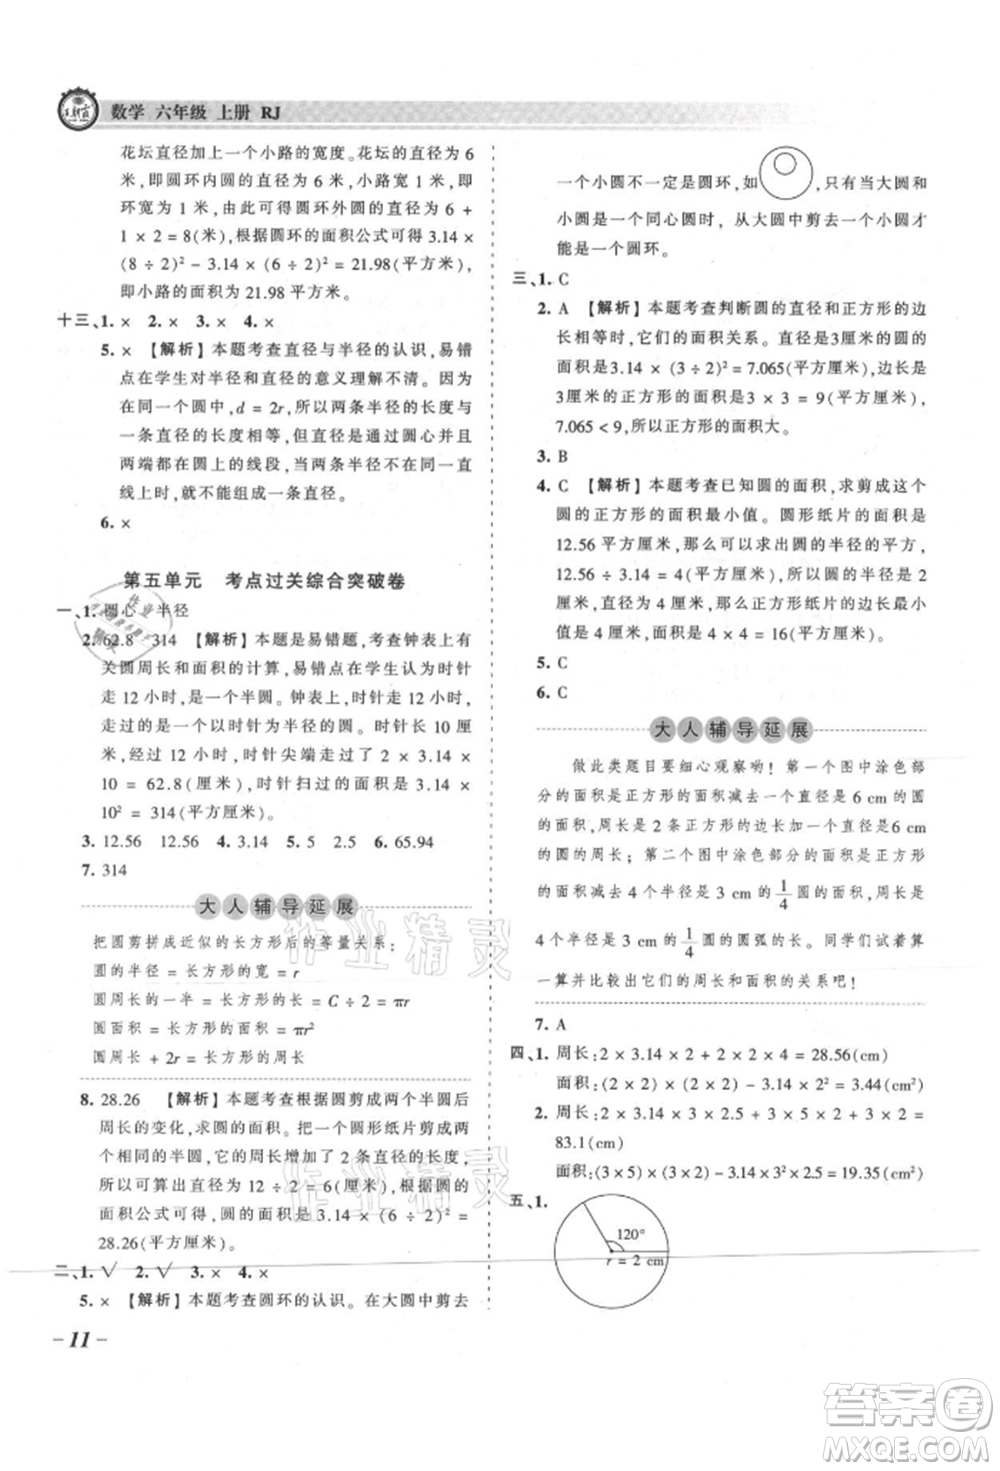 王朝霞
数学 六年级 上册 RJ
花坛直径加上一个小路的宽度。花坛的直径为 6
米,即圆环内圆的直径为 6 米,小路宽 1 米,即圆
环宽度为 1 米,由此可得圆环外圆的直径为 6 +
1 × 2 = 8(米),根据圆环的面积公式可得 3.14 ×
(8 ÷ 2)² - 3.14 × (6 ÷ 2)² = 21.98(平方米),
即小路的面积为 21.98 平方米。
十三、1. × 2. × 3. × 4. ×
5. × 【解析】本题考查直径与半径的认识,易错
点在学生对半径和直径的意义理解不清。因为
在同一个圆中,d = 2r,所以两条半径的长度与
一条直径的长度相等,但直径是通过圆心并且
两端都在圆上的线段,当两条半径不在同一直
线上时,就不能组成一条直径。
6. ×
第五单元 考点过关综合突破卷
一、1. 圆心 半径
2. 62.8 314 【解析】本题是易错题,考查钟表上有
关圆周长和面积的计算。易错点在学生认为时针
走 12 小时,是一个半圆。钟表上,时针走 12 小时,
走过的是一个以时针为半径的圆。时针长 10 厘
米,经过 12 小时,时针尖端走了 2 × 3.14 ×
10 = 62.8(厘米),时针扫过的面积是 3.14 ×
10² = 314(平方厘米)。
3. 12.56 12.56 4. 3.14 5. 5 2.5 6. 65.94
7. 314
大人辅导延展
把圆剪拼成近似的长方形后的等量关系:
圆的半径 = 长方形的宽 = r
圆周长的一半 = 长方形的长 = C ÷ 2 = πr
圆面积 = 长方形的面积 = πr²
圆周长 + 2r = 长方形的周长
8. 28.26 【解析】本题考查根据圆剪成两个半圆后
周长的变化,求圆的面积。把一个圆形纸片剪成两
个相等的半圆,它的周长增加了 2 条直径的长度,
所以可算出直径为 12 ÷ 2 = 6(厘米),根据圆的
面积公式可得圆形纸片的面积为 3.14 × (6 ÷ 2)² =
28.26(平方厘米)。
二、1. √ 2. √ 3. × 4. ×
5. × 【解析】本题考查圆环的认识。在大圆中剪去
- 11 -
一个小圆不一定是圆环,如 ,只有当大圆和
小圆是一个同心圆时,从大圆中剪去一个小圆才
能是一个圆环。
三、1. C
2. A 【解析】本题考查判断圆的直径和正方形的边
长相等时,它们的面积关系。直径是3厘米的圆的
面积是 3.14 × (3 ÷ 2)² = 7.065(平方厘米),边长是
3厘米的正方形的面积是 3 × 3 = 9(平方厘米),
7.065 < 9,所以正方形的面积大。
3. B
4. C 【解析】本题考查已知圆的面积,求剪成这个
圆的正方形面积最小值。圆形纸片的面积是
12.56 平方厘米,可以求出圆的半径的平方是
12.56 ÷ 3.14 = 4(平方厘米),即圆的半径是 2 厘
米,所以这张正方形纸片的边长至少是 4 厘米,面
积至少是 4 × 4 = 16(平方厘米)。
5. C
6. C
大人辅导延展
做此类题目要细心观察哟!第一个图中涂色部
分的面积是正方形的面积减去一个直径是 6 cm 的圆
的面积,周长是 2 条正方形的边长加一个直径是 6 cm
的圆的周长;第二个图中涂色部分的面积是正方形的
面积减去 4 个半径是 3 cm 的 1/4 圆的面积,周长是
4 个半径是 3 cm 的 1/4 圆的圆弧的长。同学们试着算
一算并比较出它们的周长和面积的关系吧!
7. A
四、1. 周长:2 × 3.14 × 2 + 2 × 2 × 4 = 28.56(cm)
面积:(2 × 2) × (2 × 2) - 3.14 × 2² = 3.44(cm²)
2. 周长:2 × 3.14 × 2.5 × 3 + 3 × 2 × 3 × 2 =
83.1(cm)
面积:(3 × 5) × (3 × 2) - 3.14 × 3² × 2.5 = 19.35(cm²)
五、1.
120°
r = 2 cm
作业精灵
作业精灵
答案圈
MXQE.COM